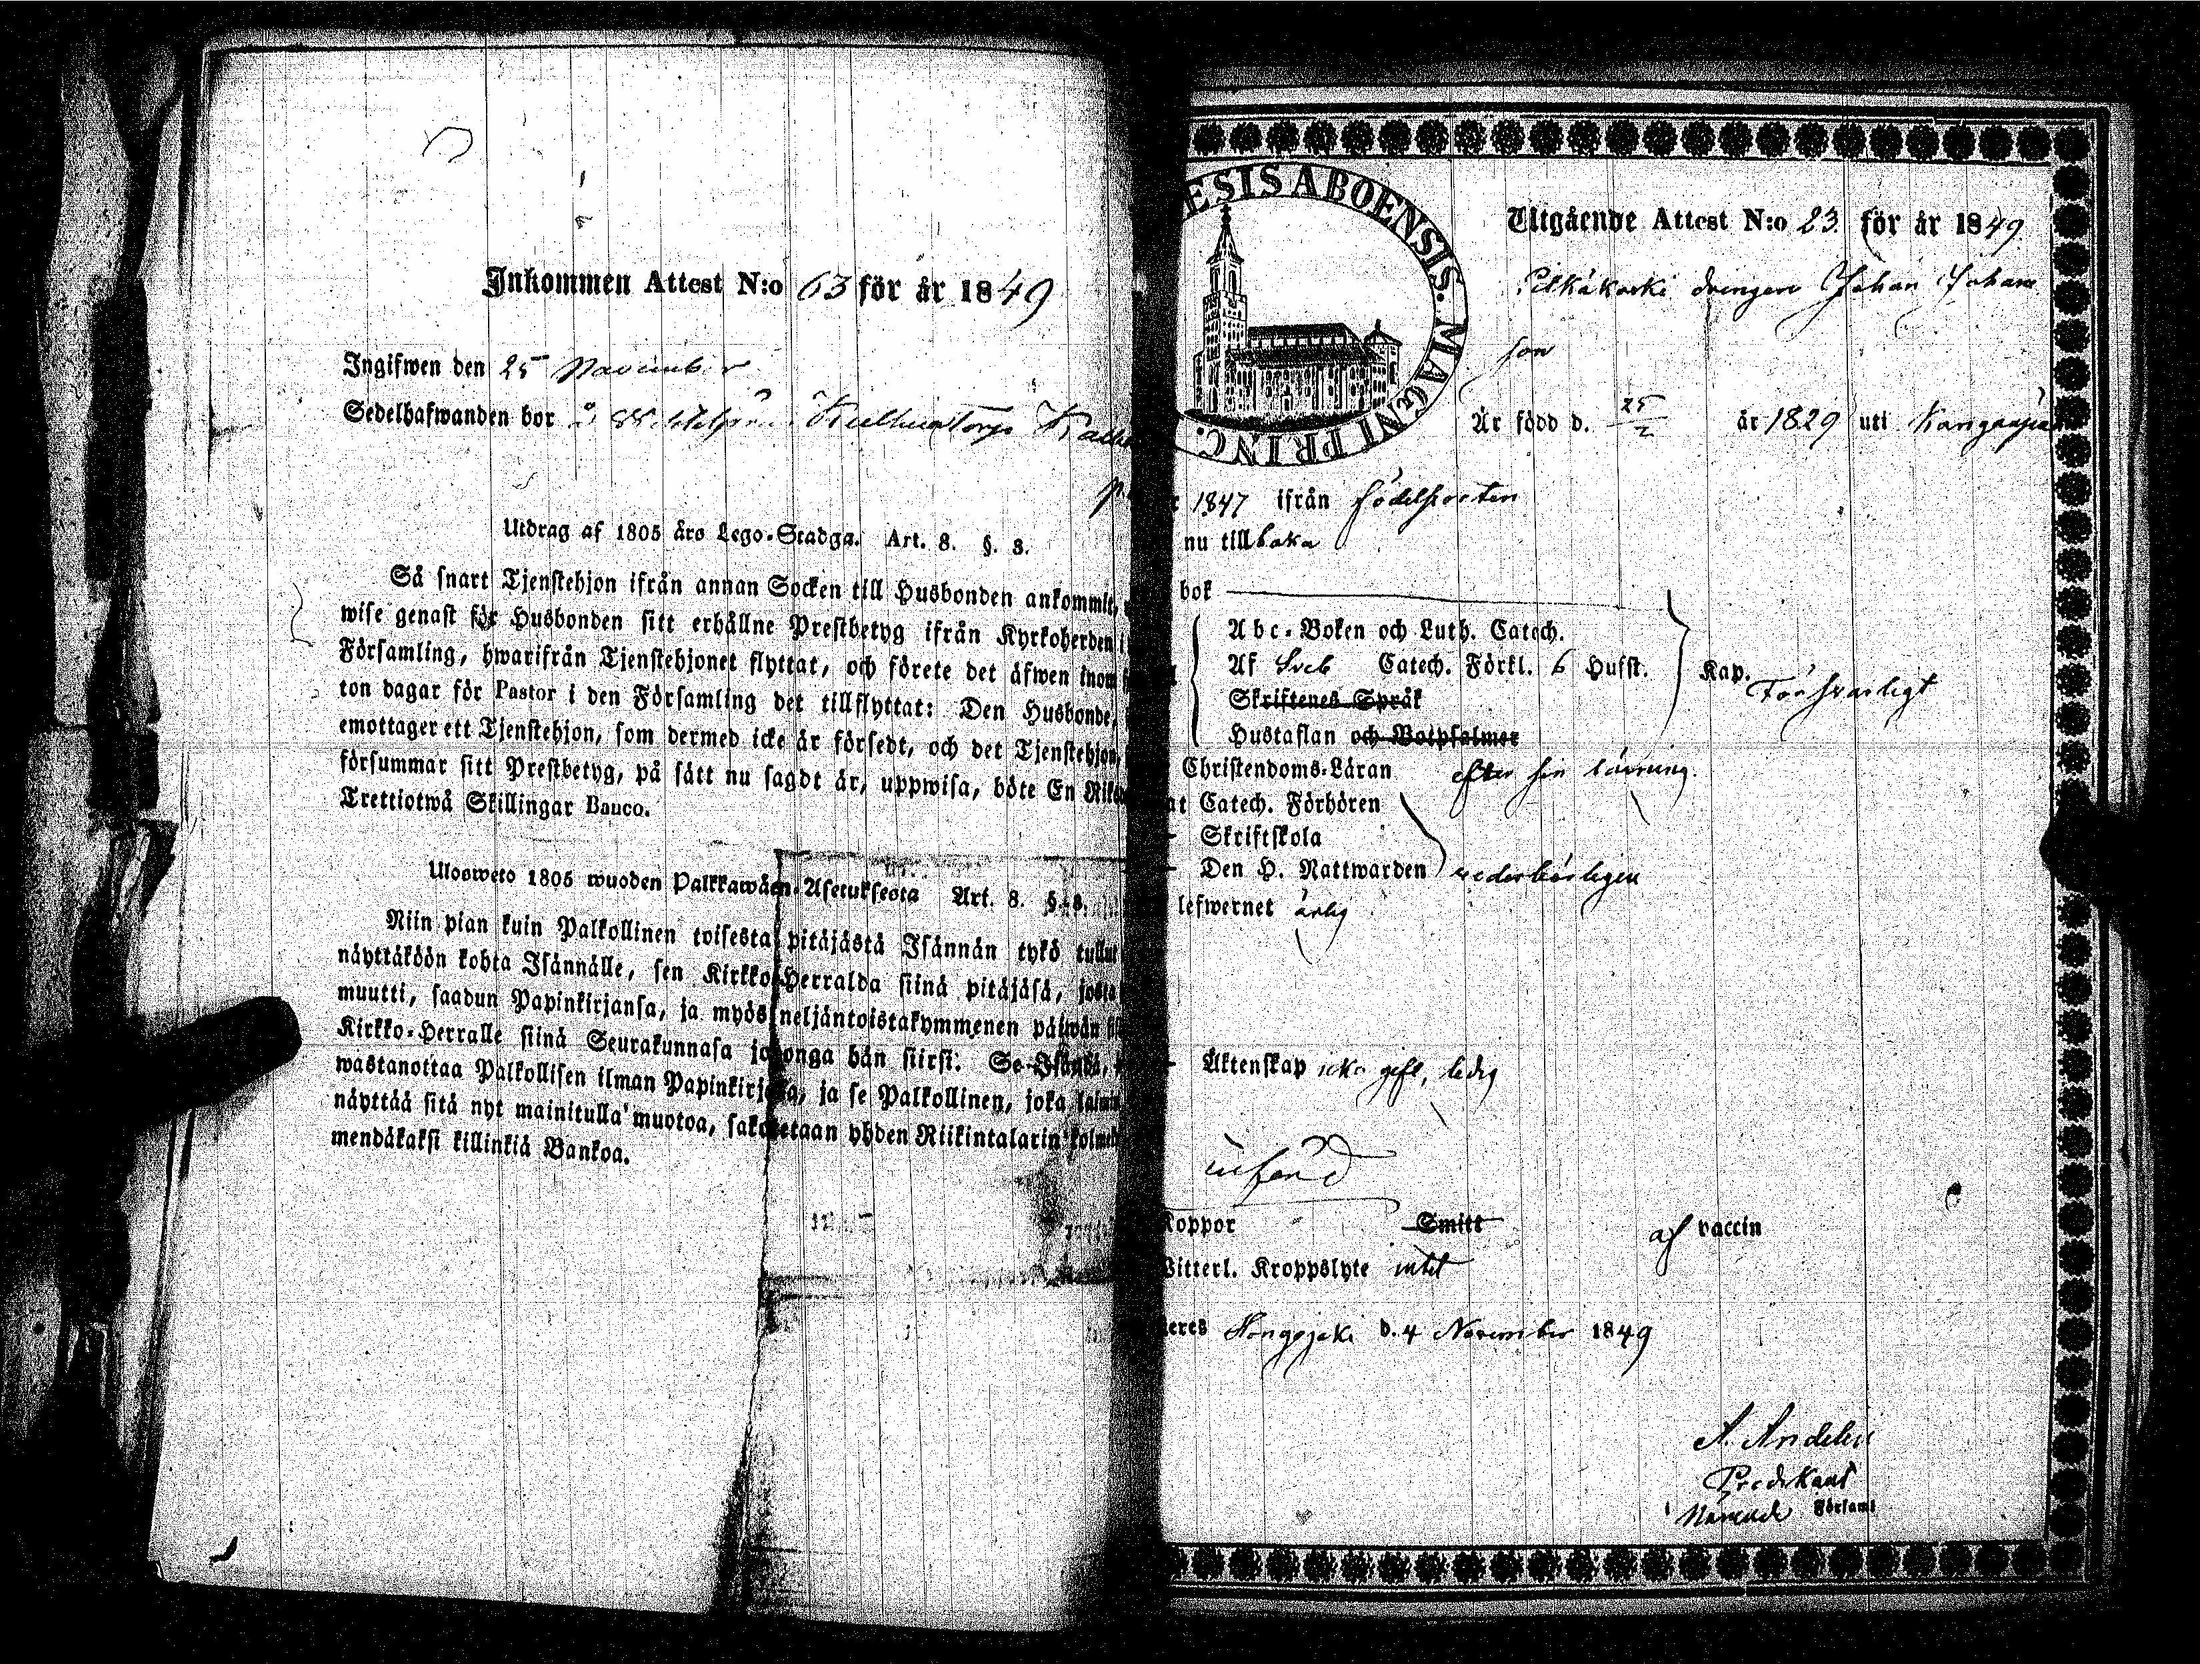 Inkommen Attest N:o 63 för år 1849
Ingifwen den 25 November
Sedelhafwanden bor å
Utdrag af 1805 års Lego-Stadga. Art. 8. §. 3.
Så snart Tjenstehjon ifrån annan Socken till Husbonden ankommit,
wise genast för Husbonden sitt erhållne Prestbetyg ifrån Kyrkoherden i
Församling, hwarifrån Tjenstehjonet flyttat, och förete det äfwen inom
ton dagar för Pastor i den Församling det tillflyttat: Den Husbonde,
emottager ett Tjenstehjon, som dermed icke är försedt, och det Tjenstehjon,
försummar sitt Prestbetyg, på sätt nu sagdt är, uppwisa, böte En
Trettiotwå Skillingar Banco.
Ulosweto 1805 wuoden Palkkawäen-Asetuksesta Art. 8. §. 3.
Niin pian kuin Palkollinen toisesta pitäjästä Isännän tykö tullut
näyttäköön kohta Isännälle, sen Kirkko-Herralda siinä pitäjäsä, josta
muutti, saadun Papinkirjansa, ja myös neljäntoistakymmenen päiwän
Kirkko-Herralle siinä Seurakunnasa johonga hän siirsi: Se Isändä,
wastanottaa Palkollisen ilman Papinkirjata, ja se Palkollinen, joka
näyttää sitä nyt mainitulla muotoa, sakotetaan yhden Riikintalarin
mendäkaksi killinkiä Bankoa.
ESIS ABOENSIS. MAGNI PRINC.
Utgående Attest N:o 23 för år 1849
drengen Johan Johans
son
Är född d. 25/2 år 1829 uti
1847 ifrån födelseorten
nu tillbaka
bok
Abc-Boken och Luth. Catech.
Af Sveb Catech. Förkl. 6 Hufst. Kap. Försvarligt
Skriftenes Språk
Hustaflan och Botpsalmer
Christendoms-Läran efter sin lärning.
at Catech. Förhören
Skriftskola
Den H. Nattwarden vederbörligen
lefwernet ärlig
Äktenskap icke gift, ledig
Koppor Smitt af vaccin
Witterl. Kroppslyte intet
Hongojoki d. 4 November 1849
Predikant
i Församl